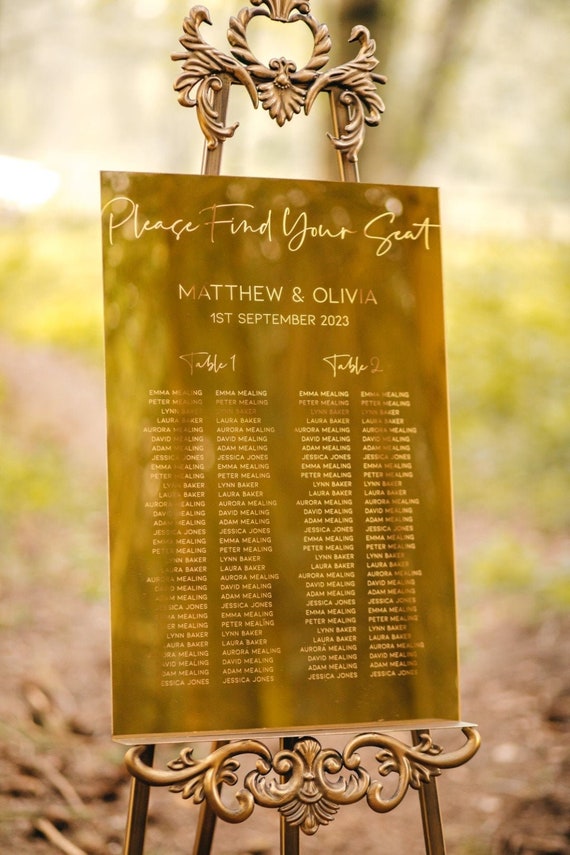 Please Find Your Seat
MATTHEW & OLIVIA
1ST SEPTEMBER 2023
Table 1
EMMA MEALING
PETER MEALING
LYNN BAKER
LAURA BAKER
AURORA MEALING
DAVID MEALING
ADAM MEALING
JESSICA JONES
EMMA MEALING
PETER MEALING
LYNN BAKER
LAURA BAKER
AURORA MEALING
DAVID MEALING
ADAM MEALING
JESSICA JONES
EMMA MEALING
PETER MEALING
LYNN BAKER
LAURA BAKER
AURORA MEALING
DAVID MEALING
ADAM MEALING
JESSICA JONES
EMMA MEALING
PETER MEALING
LYNN BAKER
LAURA BAKER
AURORA MEALING
DAVID MEALING
ADAM MEALING
JESSICA JONES
EMMA MEALING
PETER MEALING
LYNN BAKER
LAURA BAKER
AURORA MEALING
DAVID MEALING
ADAM MEALING
JESSICA JONES
EMMA MEALING
PETER MEALING
LYNN BAKER
LAURA BAKER
AURORA MEALING
DAVID MEALING
ADAM MEALING
JESSICA JONES
EMMA MEALING
PETER MEALING
LYNN BAKER
LAURA BAKER
AURORA MEALING
DAVID MEALING
ADAM MEALING
JESSICA JONES
EMMA MEALING
PETER MEALING
LYNN BAKER
LAURA BAKER
AURORA MEALING
DAVID MEALING
ADAM MEALING
JESSICA JONES
Table 2
EMMA MEALING
PETER MEALING
LYNN BAKER
LAURA BAKER
AURORA MEALING
DAVID MEALING
ADAM MEALING
JESSICA JONES
EMMA MEALING
PETER MEALING
LYNN BAKER
LAURA BAKER
AURORA MEALING
DAVID MEALING
ADAM MEALING
JESSICA JONES
EMMA MEALING
PETER MEALING
LYNN BAKER
LAURA BAKER
AURORA MEALING
DAVID MEALING
ADAM MEALING
JESSICA JONES
EMMA MEALING
PETER MEALING
LYNN BAKER
LAURA BAKER
AURORA MEALING
DAVID MEALING
ADAM MEALING
JESSICA JONES
EMMA MEALING
PETER MEALING
LYNN BAKER
LAURA BAKER
AURORA MEALING
DAVID MEALING
ADAM MEALING
JESSICA JONES
EMMA MEALING
PETER MEALING
LYNN BAKER
LAURA BAKER
AURORA MEALING
DAVID MEALING
ADAM MEALING
JESSICA JONES
EMMA MEALING
PETER MEALING
LYNN BAKER
LAURA BAKER
AURORA MEALING
DAVID MEALING
ADAM MEALING
JESSICA JONES
EMMA MEALING
PETER MEALING
LYNN BAKER
LAURA BAKER
AURORA MEALING
DAVID MEALING
ADAM MEALING
JESSICA JONES